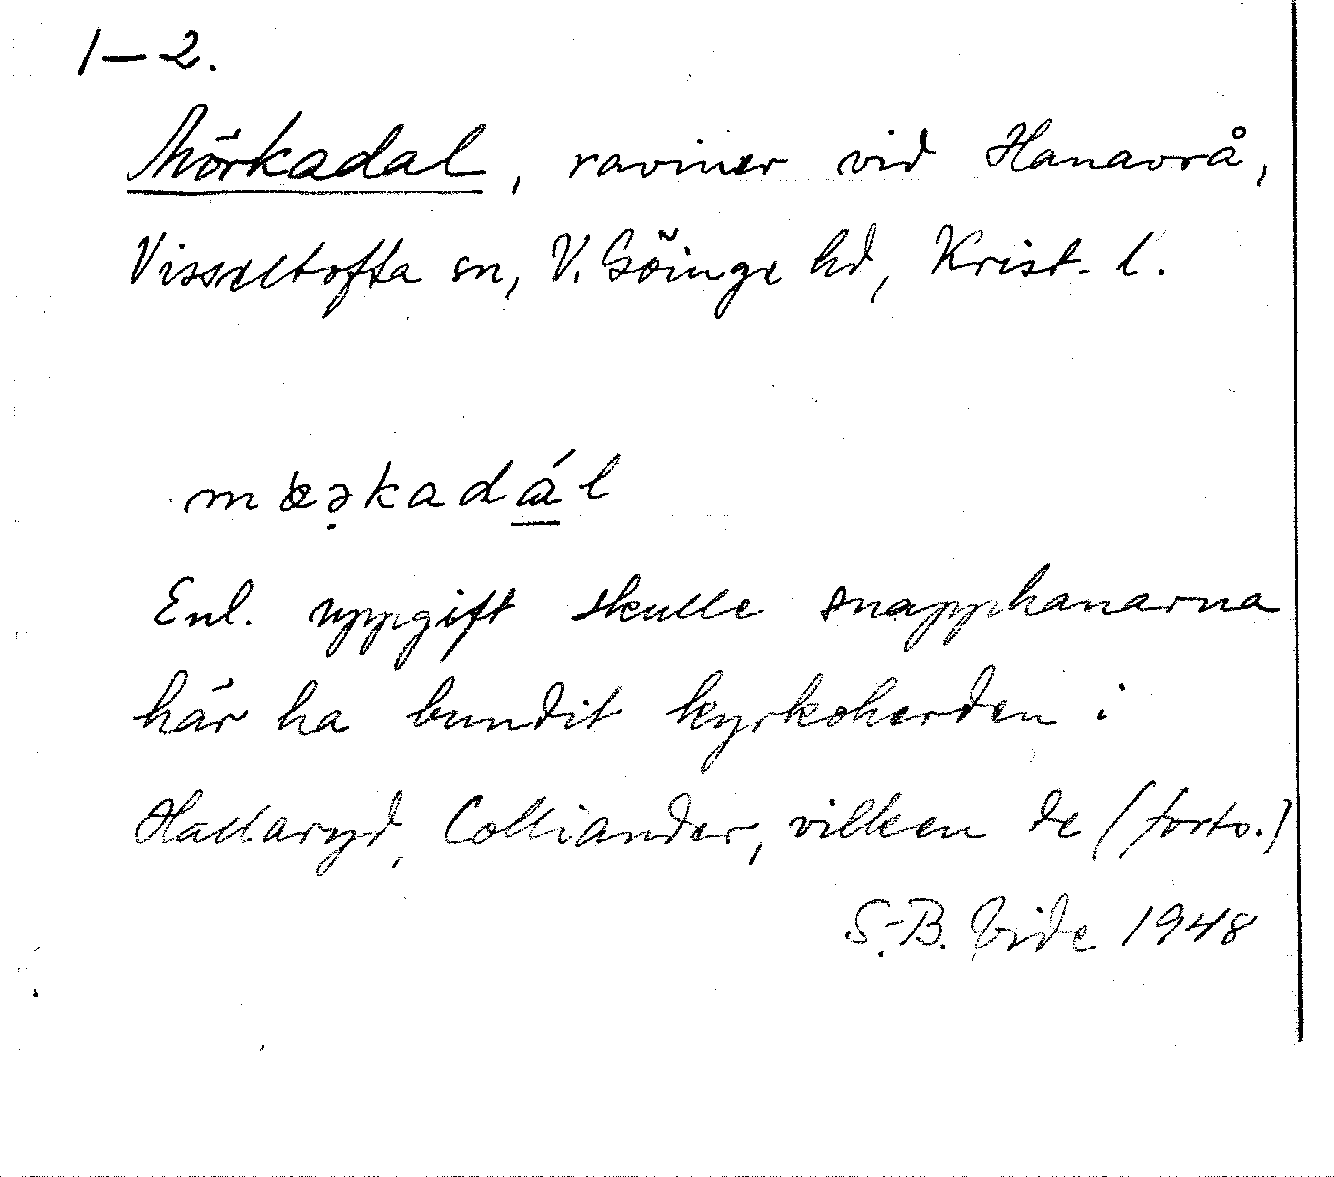 1–2.
Mörkadal, raviner vid Hanavrå,
Visseltofta sn, V. Göinge hd, Krist. l.
mœə̣kadál
Enl. uppgift skulle snapphanarna
här ha bundit kyrkoherden i
Hallaryd, Colliander, vilken de (forts.)
S.-B. Vide 1948